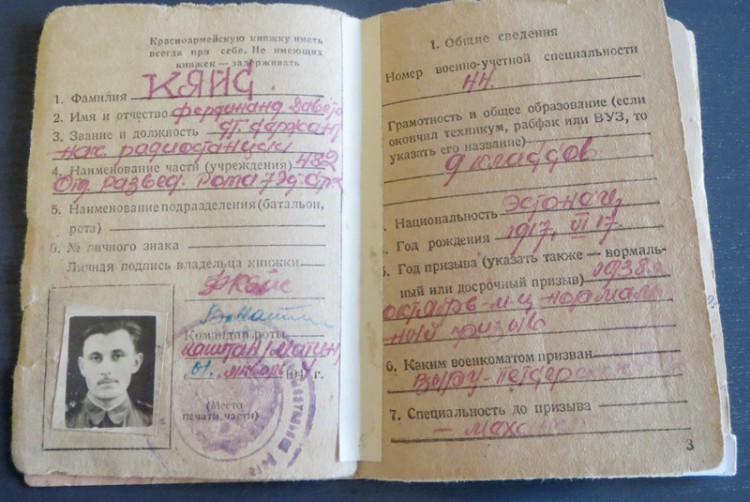 Красноармейскую книжку иметь
всегда при себе. Не имеющих
книжек — задерживать
1. Фамилия КЯЙС
2. Имя и отчество Фердинанд
3. Звание и должность ст. сержант
нач. радиостанции
4. Наименование части (учреждения) 482
Отд. развед. рота
5. Наименование подразделения (батальон,
рота)
6. № личного знака
Личная подпись владельца книжки
Ф Кяйс
Командир роты
капитан
01. г.
(Место
печати части)
I. Общие сведения
Номер военно-учетной специальности
44.
Грамотность и общее образование (если
окончил техникум, рабфак или ВУЗ, то
указать его название)
9 классов
Национальность Эстонец
Год рождения 1917, VI 17.
Год призыва (указать также — нормаль-
ный или досрочный призыв) 1938 г.
октябрь м-ц нормаль
ный призыв
6. Каким военкоматом призван
Выру-
7. Специальность до призыва
3